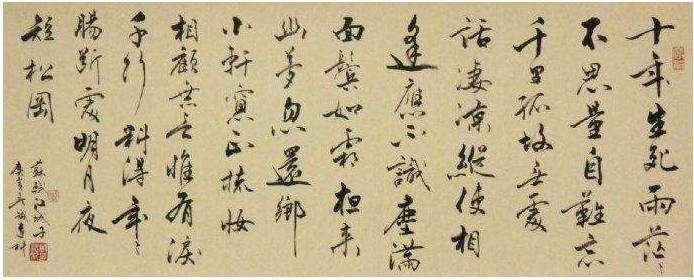 十年生死兩茫々
不思量自難忘
千里孤坟無處
話淒涼縱使相
逢應不識塵滿
面鬢如霜夜来
幽夢忽還鄉
小軒窗正梳妝
相顧無言惟有淚
千行料得年々
腸斷處明月夜
短松岡
蘇軾江城子